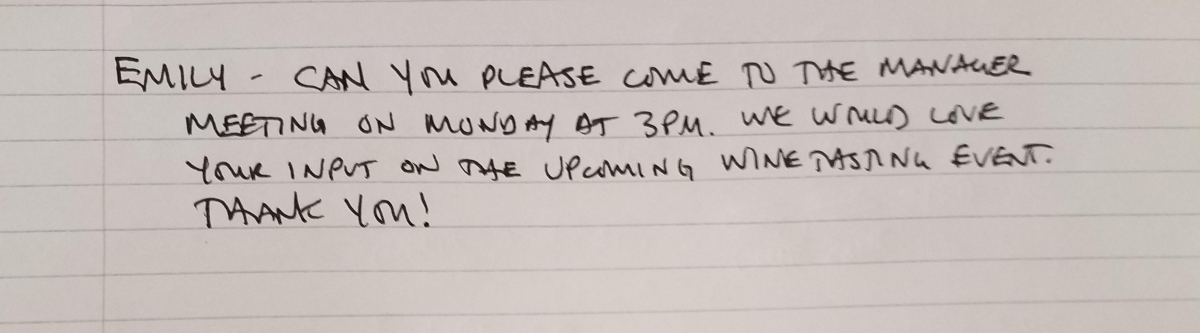 EMILY - CAN YOU PLEASE COME TO THE MANAGER
MEETING ON MONDAY AT 3PM. WE WOULD LOVE
YOUR INPUT ON THE UPCOMING WINE TASTING EVENT.
THANK YOU!